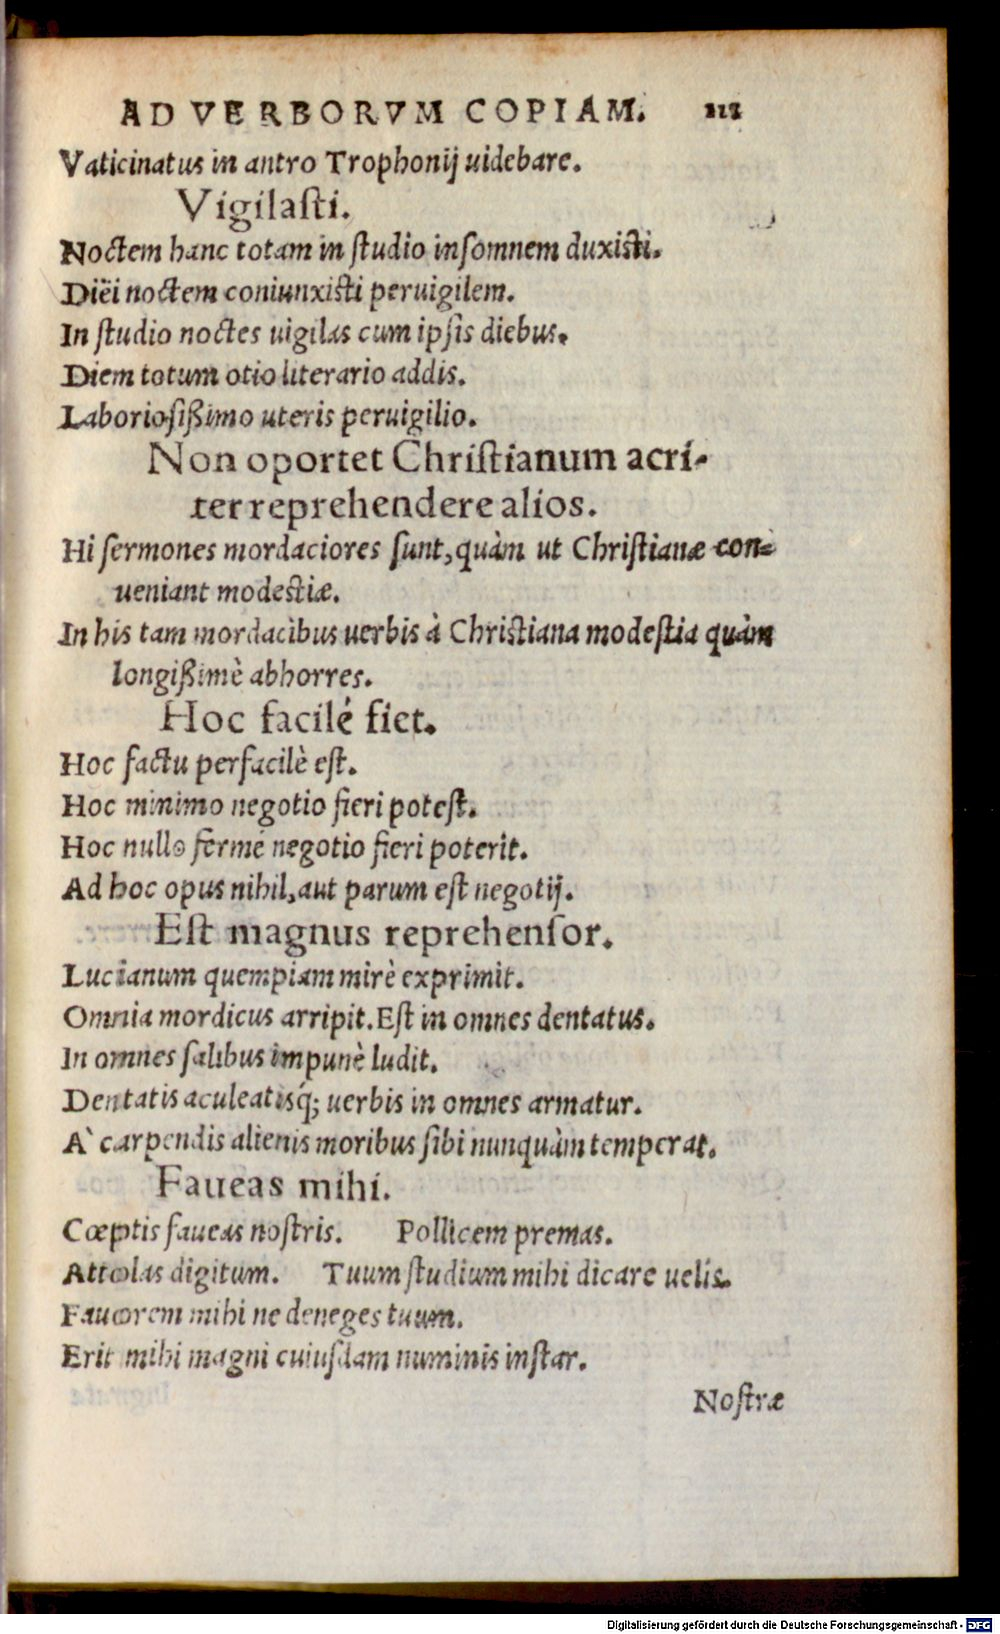 AD VERBORVM COPIAM. 111
Vaticinatus in antro Trophonij uidebare.
Vigilaſti.
Noctem hanc totam in ſtudio inſomnem duxiſti.
Diëi noctem coniunxiſti peruigilem.
In ſtudio noctes uigilas cum ipſis diebus.
Diem totum otio literario addis.
Laborioſiſſimo uteris peruigilio.
Non oportet Chriſtianum acri-
ter reprehendere alios.
Hi ſermones mordaciores ſunt, quàm ut Chriſtianæ con-
ueniant modeſtiæ.
In his tam mordacibus uerbis à Chriſtiana modeſtia quàm
longißimè abhorres.
Hoc facilé fiet.
Hoc factu perfacilè eſt.
Hoc minimo negotio fieri poteſt.
Hoc nullo fermè negotio fieri poterit.
Ad hoc opus nihil, aut parum eſt negotij.
Eſt magnus reprehenſor.
Lucianum quempiam mirè exprimit.
Omnia mordicus arripit. Eſt in omnes dentatus.
In omnes ſalibus impunè ludit.
Dentatis aculeatisq́; uerbis in omnes armatur.
A` carpendis alienis moribus ſibi nunquàm temperat.
Faueas mihi.
Cœptis faueas noſtris. Pollicem premas.
Attolas digitum. Tuum ſtudium mihi dicare uelis.
Fauorem mihi ne deneges tuum.
Erit mihi magni cuiuſdam numinis inſtar.
Noſtræ
Digitalisierung gefördert durch die Deutsche Forschungsgemeinschaft - DFG